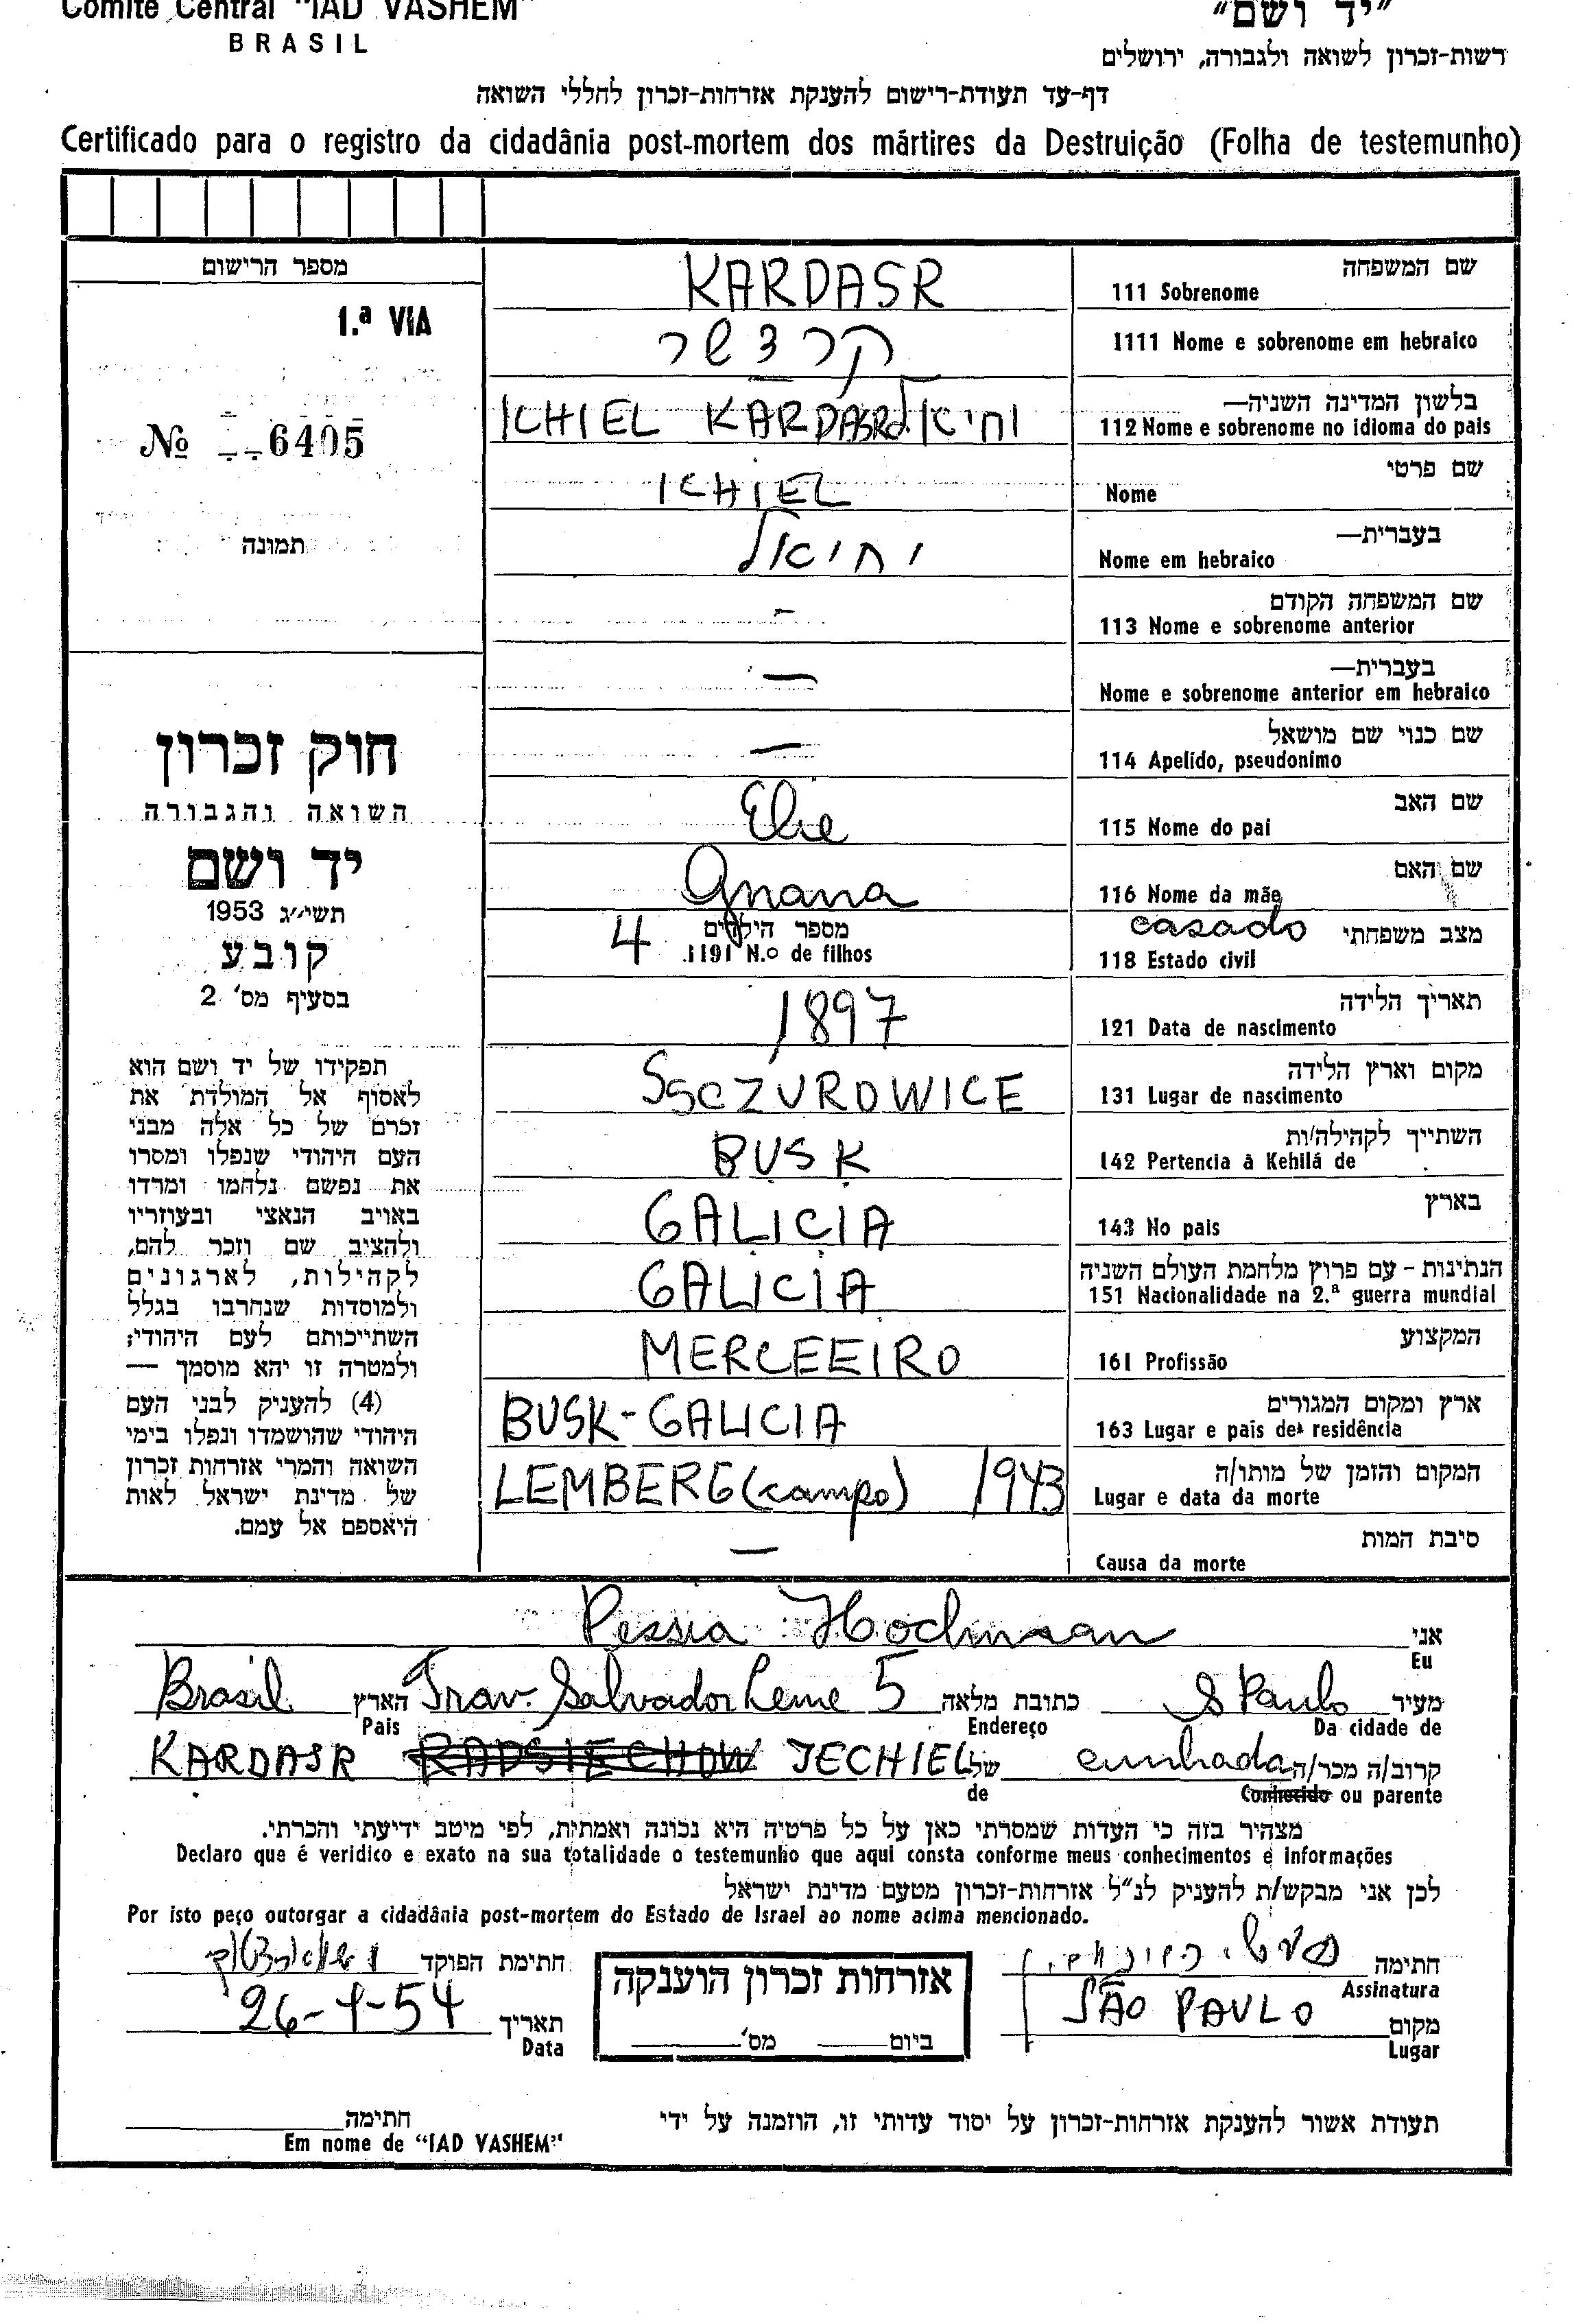 Comité Central "IAD VASHEM"
BRASIL
"יד ושם"
רשות-זכרון לשואה ולגבורה, ירושלים
דף-עד תעודת-רישום להענקת אזרחות-זכרון לחללי השואה
Certificado para o registro da cidadânia post-mortem dos mártires da Destruição (Folha de testemunho)
מספר הרישום
1.ª VIA
Nº 6405
תמונה
חוק זכרון
השואה והגבורה
יד ושם
תשי"ג 1953
קובע
בסעיף מס' 2
תפקידו של יד ושם הוא
לאסוף אל המולדת את
זכרם של כל אלה מבני
העם היהודי שנפלו ומסרו
את נפשם נלחמו ומרדו
באויב הנאצי ובעוזריו
ולהציב שם וזכר להם,
לקהילות, לארגונים
ולמוסדות שנחרבו בגלל
השתייכותם לעם היהודי;
ולמטרה זו יהא מוסמך —
(4) להעניק לבני העם
היהודי שהושמדו ונפלו בימי
השואה והמרי אזרחות זכרון
של מדינת ישראל לאות
היאספם אל עמם.
שם המשפחה
111 Sobrenome KARDASR
1111 Nome e sobrenome em hebraico קרדשר
בלשון המדינה השניה—
112 Nome e sobrenome no idioma do pais ICHIEL KARDASR יחיאל
שם פרטי
Nome ICHIEL
בעברית—
Nome em hebraico יחיאל
שם המשפחה הקודם
113 Nome e sobrenome anterior –
בעברית—
Nome e sobrenome anterior em hebraico —
שם כנוי שם מושאל
114 Apelido, pseudonimo —
שם האב
115 Nome do pai Elie
שם האם
116 Nome da mãe Gnana
מצב משפחתי casado
118 Estado civil
מספר הילדים
1191 N.o de filhos 4
תאריך הלידה
121 Data de nascimento 1897
מקום וארץ הלידה
131 Lugar de nascimento SSCZUROWICE
השתייך לקהילה/ות
142 Pertencia à Kehilá de BUSK
בארץ
143 No pais GALICIA
הנתינות - עם פרוץ מלחמת העולם השניה
151 Nacionalidade na 2.ª guerra mundial GALICIA
המקצוע
161 Profissão MERCEEIRO
ארץ ומקום המגורים
163 Lugar e pais de residência BUSK-GALICIA
המקום והזמן של מותו/ה
Lugar e data da morte LEMBERG (campo) 1943
סיבת המות
Causa da morte —
אני Pessia Hochmaan
Eu
מעיר S Paulo כתובת מלאה Trav. Salvador Leme 5 הארץ Brasil
Da cidade de Endereço Pais
קרוב/ה מכר/ה cunhada של JECHIEL RADSIECHOW KARDASR
Conhecido ou parente de
מצהיר בזה כי העדות שמסרתי כאן על כל פרטיה היא נכונה ואמתית, לפי מיטב ידיעתי והכרתי.
Declaro que é veridico e exato na sua totalidade o testemunho que aqui consta conforme meus conhecimentos e informações
לכן אני מבקש/ת להעניק לנ"ל אזרחות-זכרון מטעם מדינת ישראל
Por isto peço outorgar a cidadânia post-mortem do Estado de Israel ao nome acima mencionado.
חתימה
Assinatura
חתימת הפוקד
אזרחות זכרון הוענקה
ביום מס'
מקום SÃO PAULO
Lugar
תאריך 26-4-54
Data
תעודת אשור להענקת אזרחות-זכרון על יסוד עדותי זו, הוזמנה על ידי
חתימה
Em nome de "IAD VASHEM"